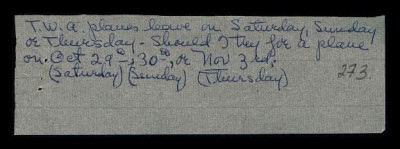 T.W.A. planes leave on Saturday, Sunday
or Thursday - Should I try for a plane
on Oct 29th, 30th, or Nov 3rd.
(Saturday) (Sunday) (Thursday)
273.